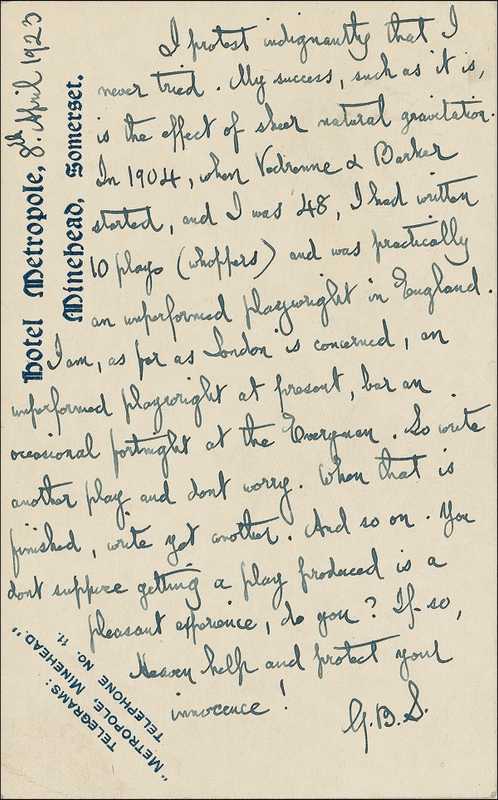 Hotel Metropole, 8th April 1923
Minehead, Somerset.
I protest indignantly that I
never tried. My success, such as it is,
is the effect of sheer natural gravitation.
In 1904, when Vedrenne & Barker
started, and I was 48, I had written
10 plays (whoppers) and was practically
an unperformed playwright in England.
I am, as far as London is concerned, an
unperformed playwright at present, bar an
occasional fortnight at the Everyman. So write
another play and dont worry. When that is
finished, write yet another. And so on. You
dont suppose getting a play produced is a
pleasant experience, do you? If so,
Heaven help and protect your
innocence!
G.B.S.
TELEGRAMS:
"METROPOLE, MINEHEAD"
TELEPHONE NO. 11.